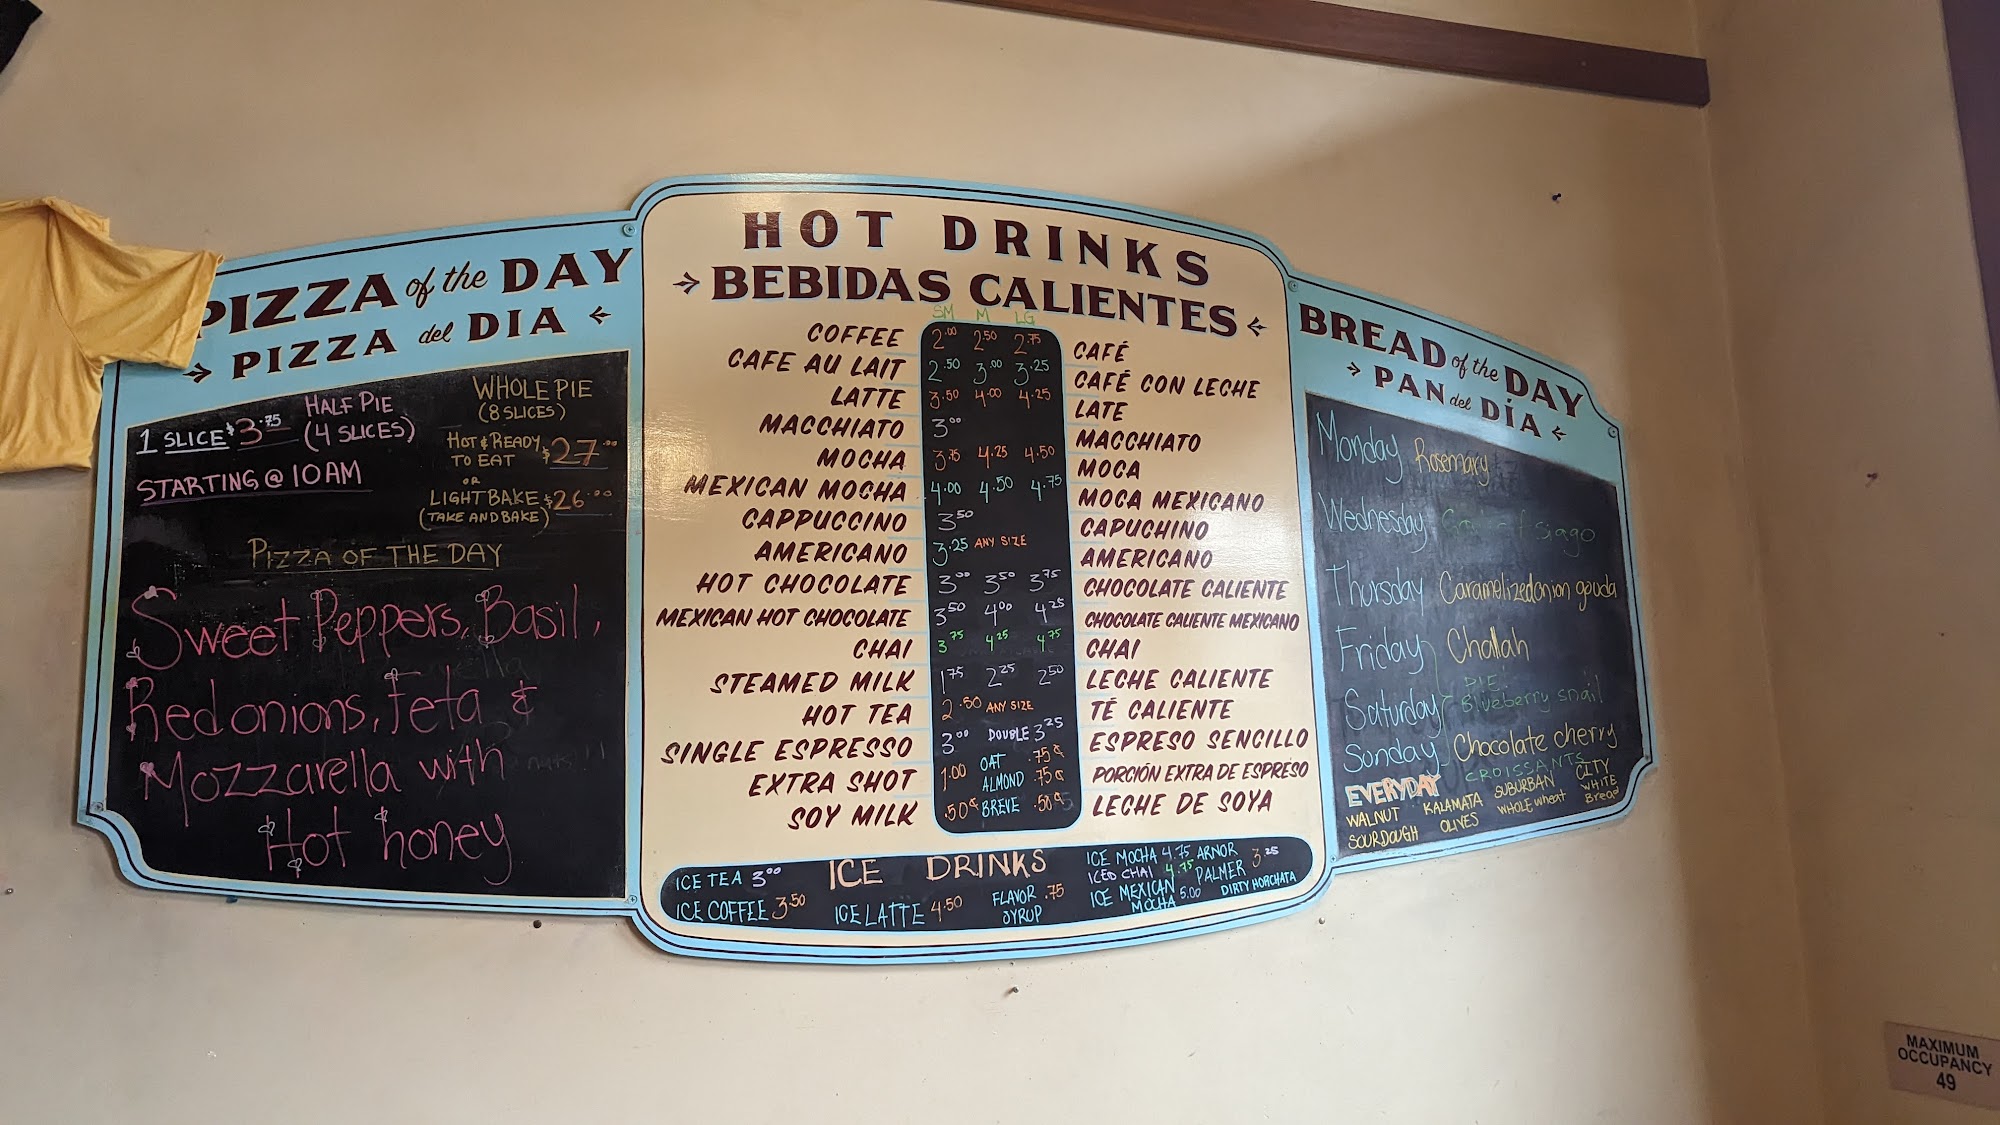 PIZZA of the DAY
PIZZA del DIA
1 SLICE $3.75
HALF PIE
(4 SLICES)
STARTING @ 10AM
WHOLE PIE
(8 SLICES)
HOT & READY
TO EAT $27.00
OR
LIGHT BAKE $26.00
(TAKE AND BAKE)
PIZZA OF THE DAY
Sweet Peppers, Basil,
Red onions, Feta &
Mozzarella with
Hot honey
HOT DRINKS
BEBIDAS CALIENTES
SM M LG
COFFEE 2.00 2.50 2.75 CAFÉ
CAFE AU LAIT 2.50 3.00 3.25 CAFÉ CON LECHE
LATTE 3.50 4.00 4.25 LATE
MACCHIATO 3.00 MACCHIATO
MOCHA 3.75 4.25 4.50 MOCA
MEXICAN MOCHA 4.00 4.50 4.75 MOCA MEXICANO
CAPPUCCINO 3.50 CAPUCHINO
AMERICANO 3.25 ANY SIZE AMERICANO
HOT CHOCOLATE 3.00 3.50 3.75 CHOCOLATE CALIENTE
MEXICAN HOT CHOCOLATE 3.50 4.00 4.25 CHOCOLATE CALIENTE MEXICANO
CHAI 3.75 4.25 4.75 CHAI
STEAMED MILK 1.75 2.25 2.50 LECHE CALIENTE
HOT TEA 2.50 ANY SIZE TÉ CALIENTE
SINGLE ESPRESSO 3.00 DOUBLE 3.25 ESPRESO SENCILLO
EXTRA SHOT 1.00 OAT .75¢ ALMOND .75¢ PORCIÓN EXTRA DE ESPRESO
SOY MILK .50¢ BREVE .50¢ LECHE DE SOYA
ICE DRINKS
ICE TEA 3.00
ICE COFFEE 3.50
ICE LATTE 4.50
FLAVOR .75
SYRUP
ICE MOCHA 4.75
ICED CHAI 4.75
ICE MEXICAN
MOCHA 5.00
ARNOR
PALMER 3.25
DIRTY HORCHATA
BREAD of the DAY
PAN del DÍA
Monday Rosemary
Wednesday
Thursday Caramelized onion gouda
Friday Challah
Saturday Blueberry snail
Sunday Chocolate cherry
CROISSANTS
EVERYDAY
WALNUT
SOURDOUGH
KALAMATA
OLIVES
SUBURBAN
WHOLE wheat
CITY
WHITE
Bread
MAXIMUM
OCCUPANCY
49